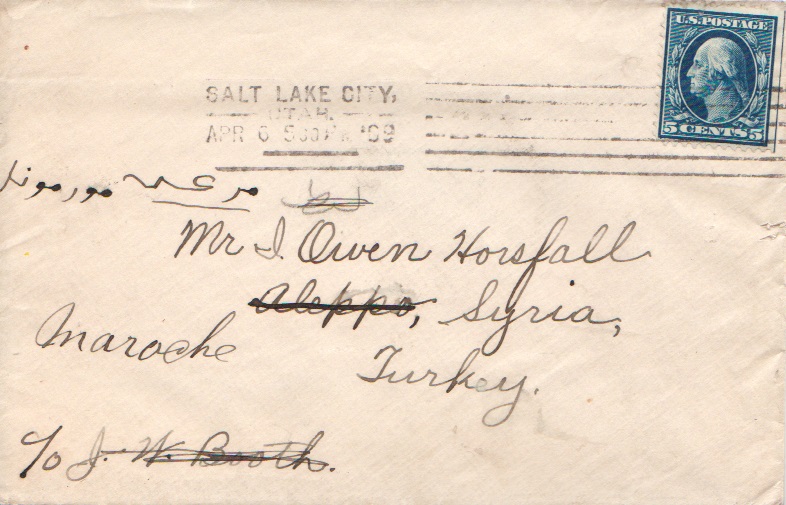 U.S. POSTAGE
5 CENTS 5
SALT LAKE CITY,
UTAH.
APR 6 5 '09
مرعش مورمون
Mr I Owen Horsfall
Aleppo, Syria,
Maroche
Turkey.
c/o J. W. Booth.